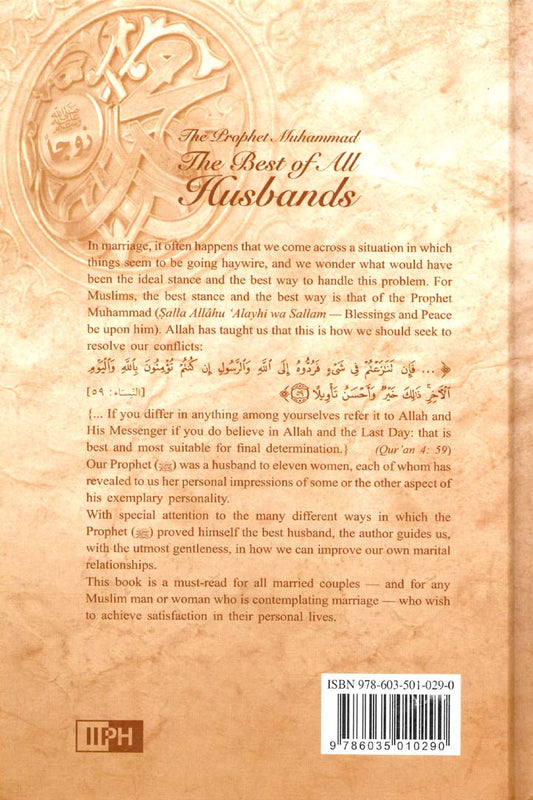 صلى الله عليه وسلم
زوجا
محمد
The Prophet Muhammad
The Best of All
Husbands
In marriage, it often happens that we come across a situation in which
things seem to be going haywire, and we wonder what would have
been the ideal stance and the best way to handle this problem. For
Muslims, the best stance and the best way is that of the Prophet
Muhammad (Ṣalla Allâhu ‘Alayhi wa Sallam — Blessings and Peace
be upon him). Allah has taught us that this is how we should seek to
resolve our conflicts:
﴿ ... فَإِن تَنَٰزَعْتُمْ فِى شَىْءٍ فَرُدُّوهُ إِلَى ٱللَّهِ وَٱلرَّسُولِ إِن كُنتُمْ تُؤْمِنُونَ بِٱللَّهِ وَٱلْيَوْمِ
ٱلْـَٔاخِرِ ۚ ذَٰلِكَ خَيْرٌ وَأَحْسَنُ تَأْوِيلًا ٥٩﴾ [النِّسَاء: ٥٩]
{... If you differ in anything among yourselves refer it to Allah and
His Messenger if you do believe in Allah and the Last Day: that is
best and most suitable for final determination.} (Qur’an 4: 59)
Our Prophet (ﷺ) was a husband to eleven women, each of whom has
revealed to us her personal impressions of some or the other aspect of
his exemplary personality.
With special attention to the many different ways in which the
Prophet (ﷺ) proved himself the best husband, the author guides us,
with the utmost gentleness, in how we can improve our own marital
relationships.
This book is a must-read for all married couples — and for any
Muslim man or woman who is contemplating marriage — who wish
to achieve satisfaction in their personal lives.
ISBN 978-603-501-029-0
9 786035 010290
IIPH